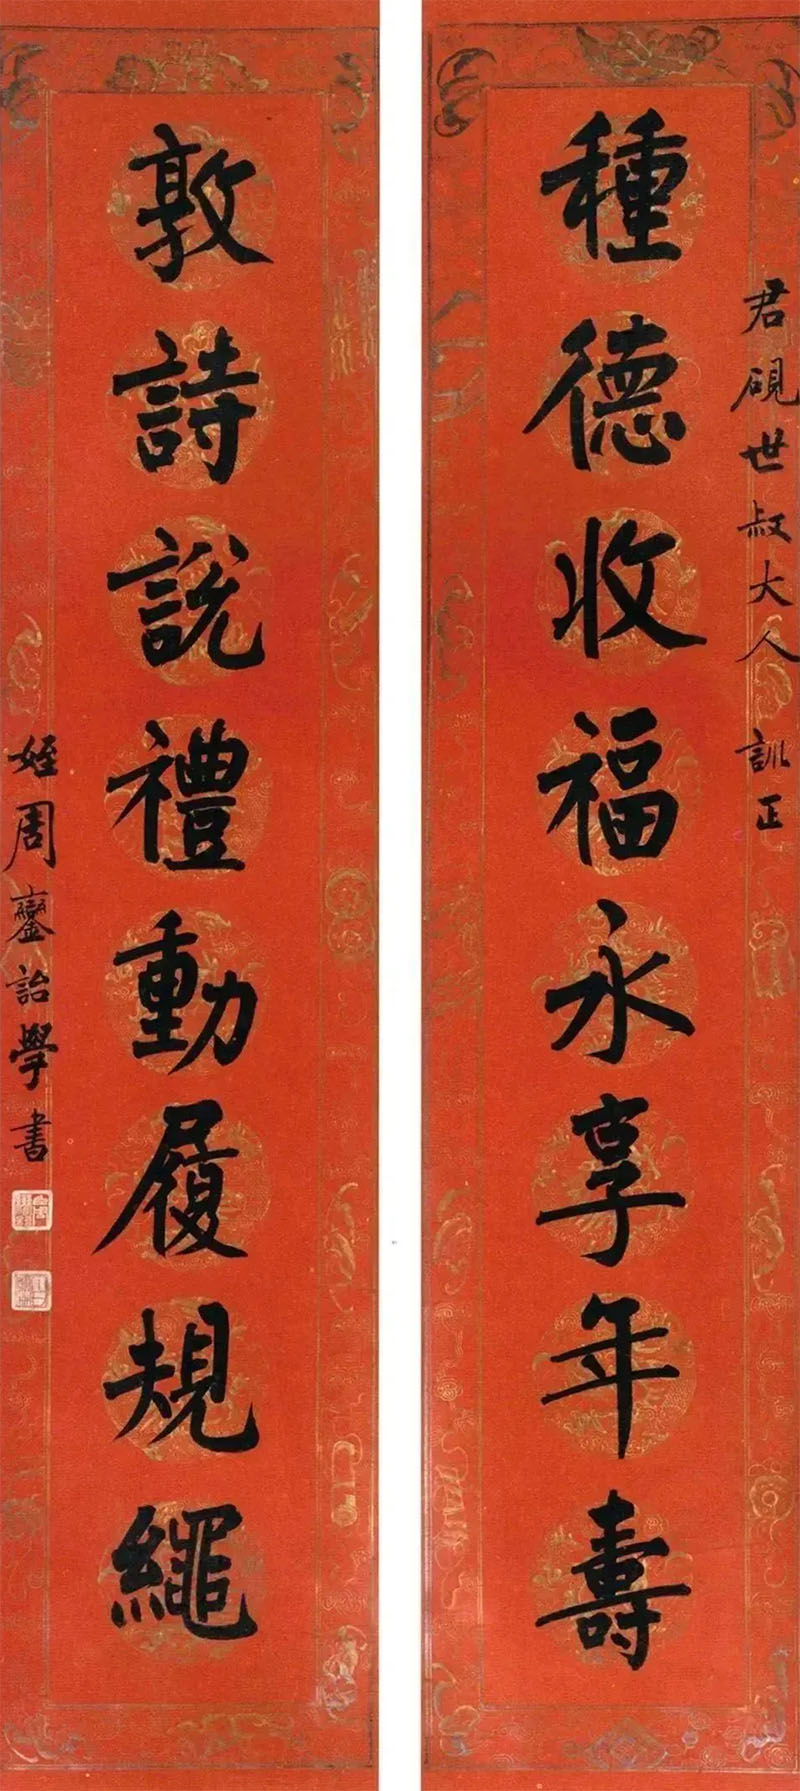 君硯世叔大人 訓正
種德收福永享年壽
敦詩說禮動履規繩
姪周鑾詒學書